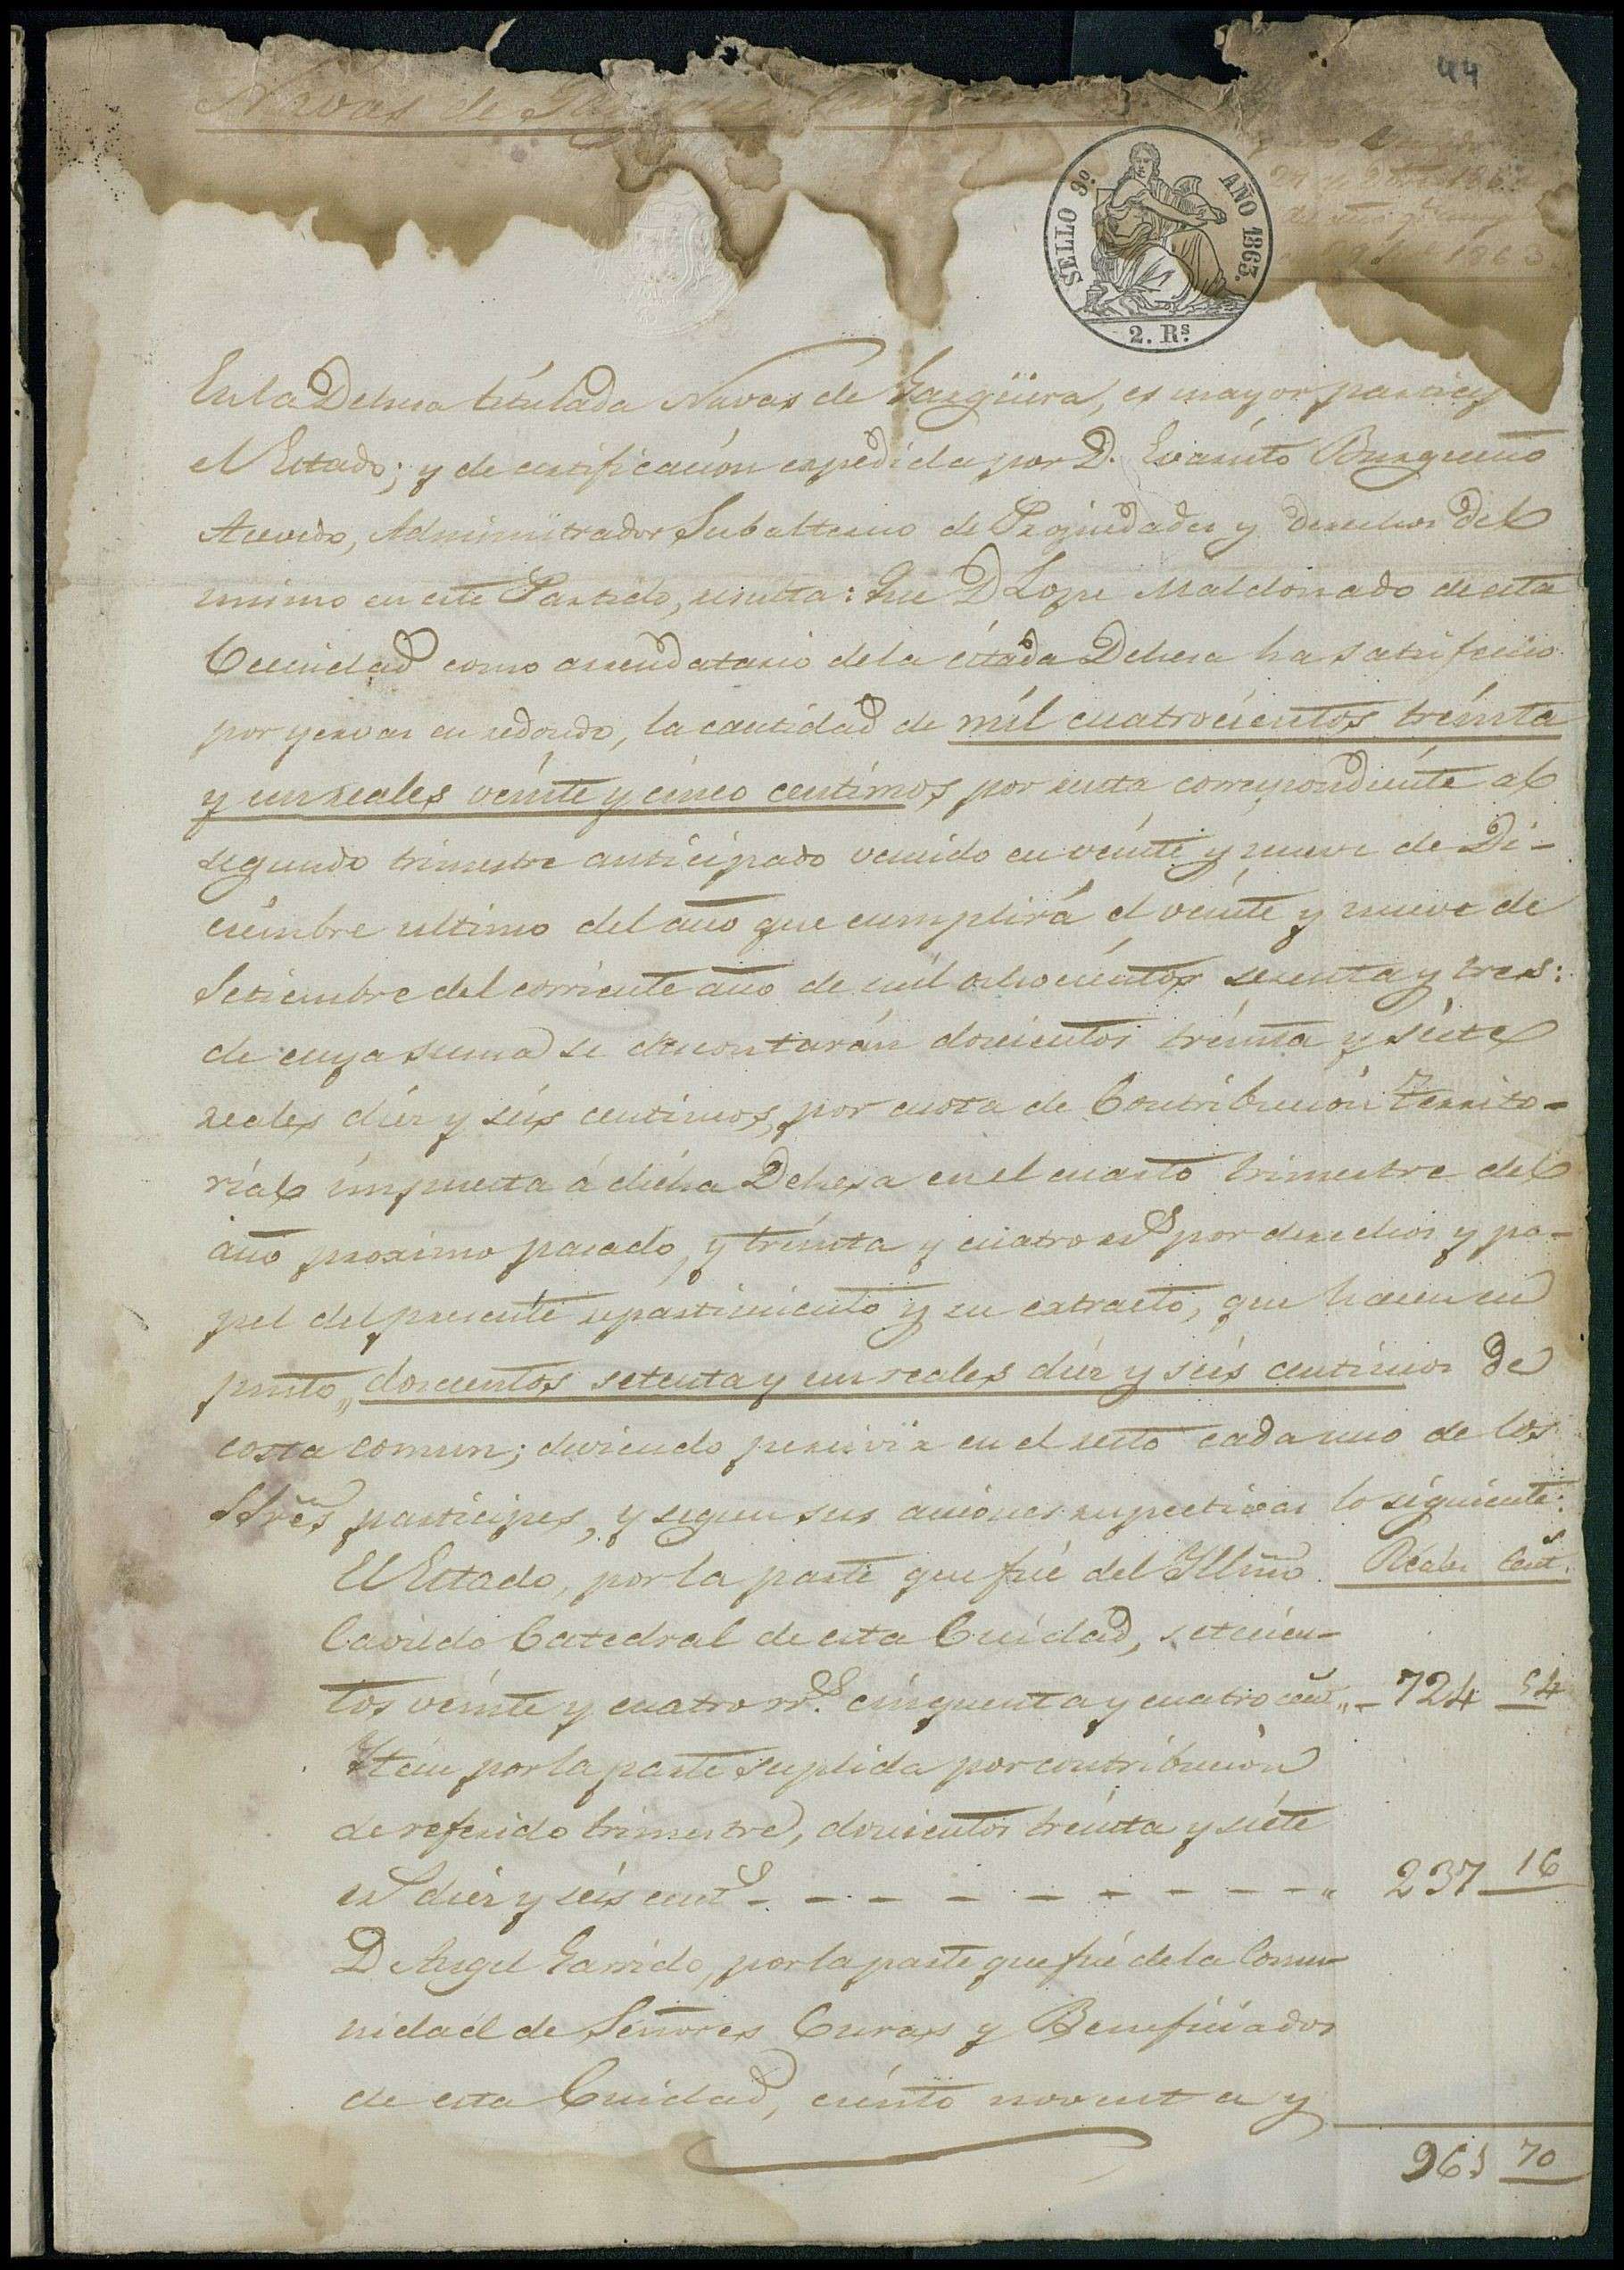 44
Navas de
SELLO 9º. AÑO 1863.
2. Rs.
29 Dbre 1862
del año q.e cumple
1863
En la Dehesa titulada Navas de Gargüera, es mayor partícipe
el Estado; y de certificación expedida por D. Evaristo Burgueño
Acevedo, Administrador Subalterno de Propiedades y derechos del
mismo en este Partido, resulta: Que D Lope Maldonado de esta
Ciudad como arrendatario de la citada Dehesa ha satisfecho
por yervas en redondo, la cantidad de mil cuatrocientos treinta
y un reales veinte y cinco centimos por renta correspondiente al
segundo trimestre anticipado vencido en veinte y nueve de Di-
ciembre ultimo del año que cumplirá el veinte y nueve de
Setiembre del corriente año de mil ochocientos sesenta y tres:
de cuya suma se descontarán doscientos treinta y siete
reales diez y seis centimos, por cuota de Contribución territo-
rial impuesta á dicha Dehesa en el cuarto trimestre del
año proximo pasado, y treinta y cuatro rs por derechos y pa-
pel del presente repartimiento y su extracto, que hacen en
junto, doscientos setenta y un reales diez y seis centimos de
costa comun; deviendo percivir en el resto cada uno de los
SSres participes, y segun sus acciones respectivas lo siguiente:
El Estado, por la parte que fué del Yllmo. Reales Cent.s
Cavildo Catedral de esta Ciudad, setecien-
tos veinte y cuatro rr.s cinquenta y cuatro cent 724 54
Ytem por la parte suplida por contribución
de referido trimestre, doscientos treinta y siete
rs diez y seis cent.s - - - - - - - - 237 16
D Angel Garrido, por la parte que fué de la Comu-
nidad de Señores Curas y Beneficiados
de esta Ciudad, ciento noventa y
961 70